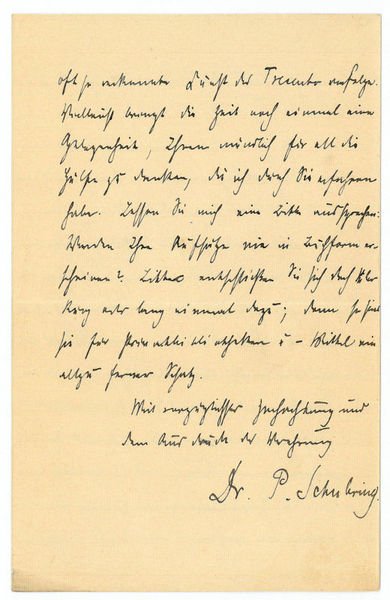 oft so verkannte Kunst des Trecento verfolge.
Vielleicht bringt die Zeit noch einmal eine
Gelegenheit, Ihnen mündlich für all die
Hülfe zu danken, die ich durch Sie erfahren
habe. Lassen Sie mich eine Bitte aussprechen:
Werden Ihre Aufsätze nie in Buchform er-
scheinen? Bitte entschließen Sie sich doch über
kurz oder lang einmal dazu; denn so sind
sie für Privatbibliotheken u – Mittel ein
allzu ferner Schatz.
Mit vorzüglichster Hochachtung und
dem Ausdruck der Verehrung
Dr. P. Schubring